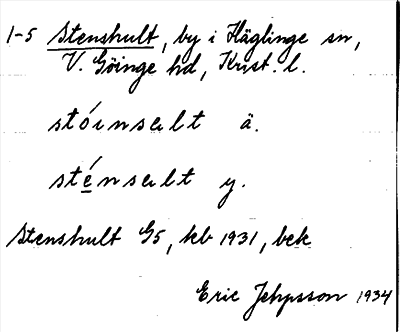 1-5 Stenshult, by i Häglinge sn,
V. Göinge hd, Krist. l.
stóınsalt ä.
sténsalt y.
Stenshult G5, kb 1931, bek
Eric Jepsson 1934